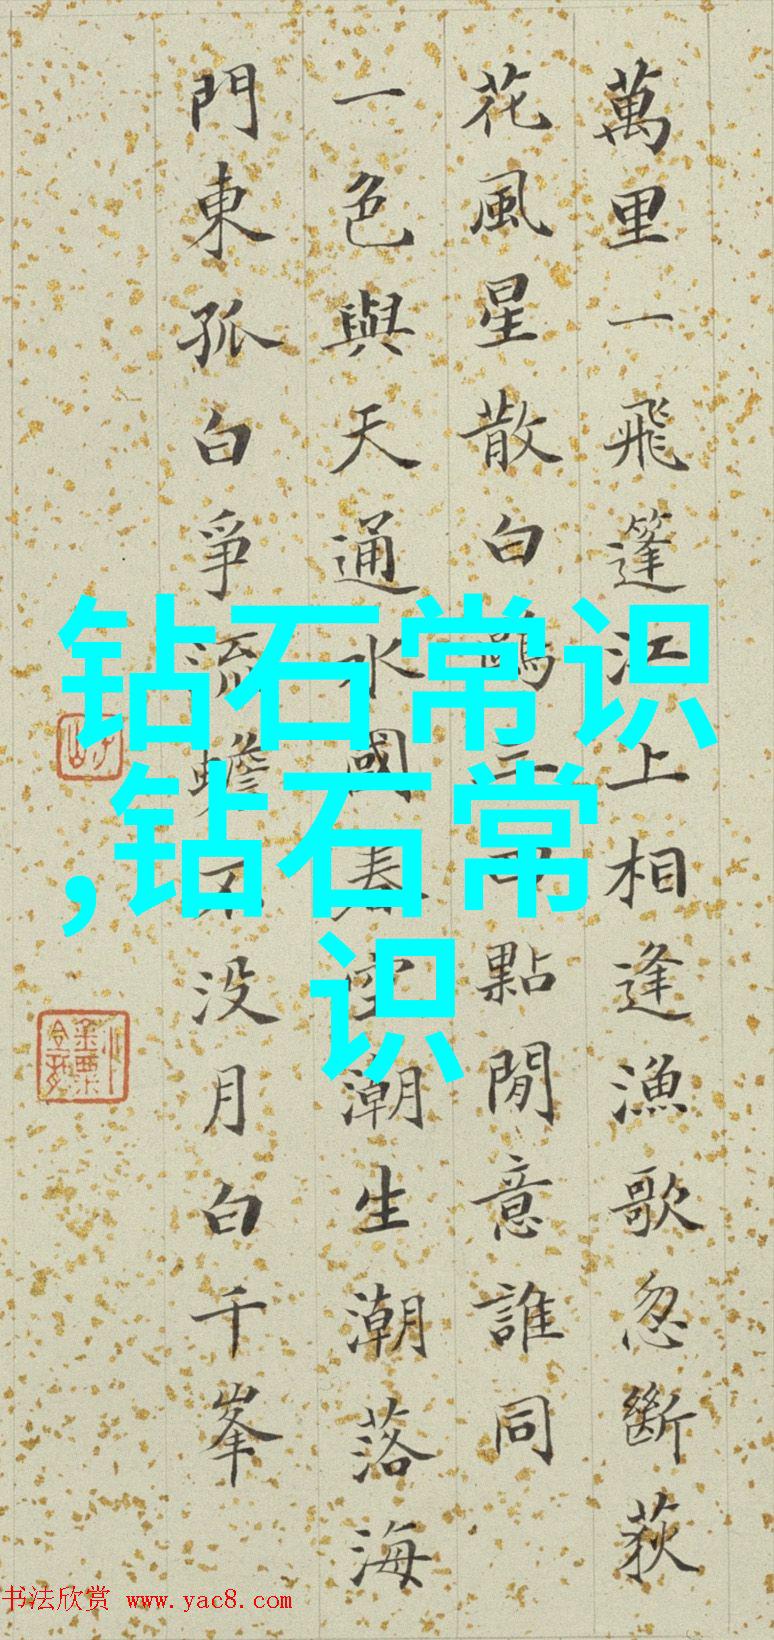 萬里一飛篷江上相逢漁歌忽斷荻
花風星散白鷗三四點閒意誰同
一色與天通水國春空潮生潮落海
門東孤白爭流蟾不没月白千峯
钻石常识
,钻石常
识
书法欣赏 www.yac8.com